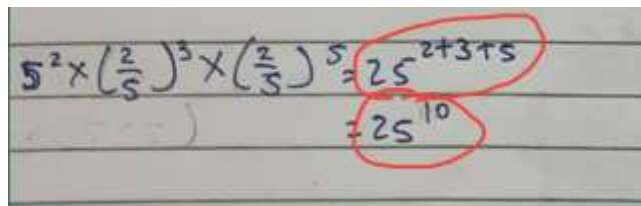 5² × (2/5)³ × (2/5)⁵ = 25²⁺³⁺⁵
= 25¹⁰